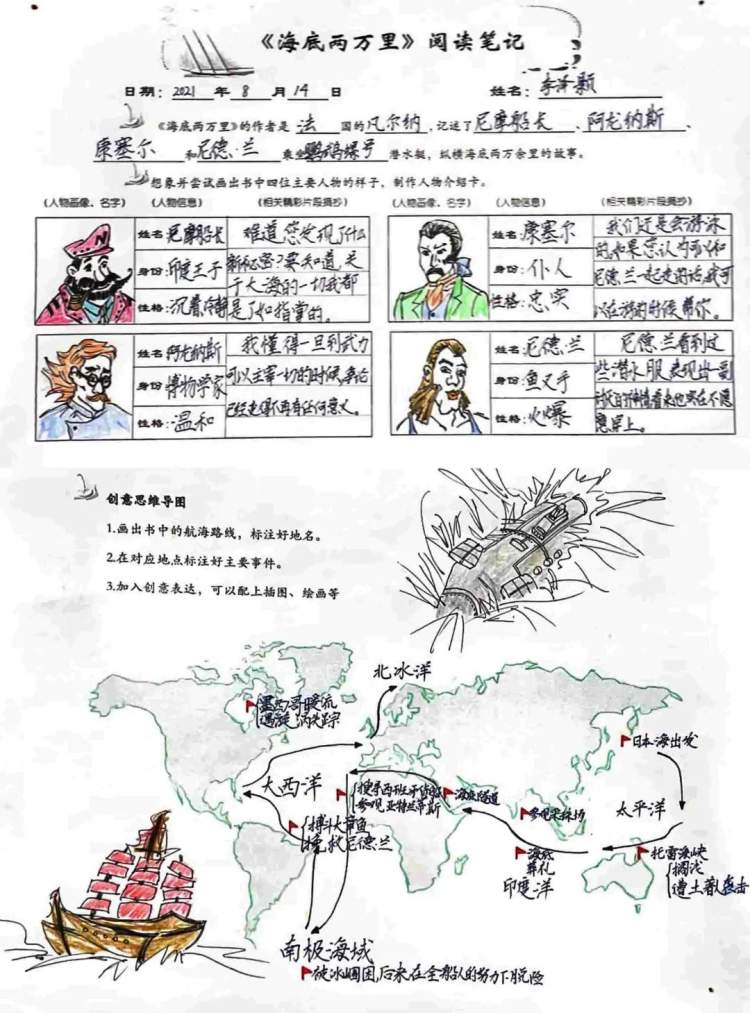 《海底两万里》阅读笔记
日期：2021 年 8 月 14 日 姓名：李泽颢
《海底两万里》的作者是 法 国的 凡尔纳，记述了 尼摩船长、阿龙纳斯、
康塞尔 和 尼德·兰 乘坐 鹦鹉螺号 潜水艇，纵横海底两万余里的故事。
想象并尝试画出书中四位主要人物的样子，制作人物介绍卡。
（人物画像、名字）（人物信息）（相关精彩片段摘抄）（人物画像、名字）（人物信息）（相关精彩片段摘抄）
姓名：尼摩船长
身份：印度王子
性格：沉着冷静
难道您发现了什么
新秘密？要知道，关
于大海的一切我都
是了如指掌的。
姓名：康塞尔
身份：仆人
性格：忠实
我们还是会游泳
的，如果您认为可以和
尼德·兰一起走的话，我可
以在游的时候帮你。
姓名：阿龙纳斯
身份：博物学家
性格：温和
我懂得一旦到武力
可以主宰一切的时候，争论
已经变得不再有任何意义。
姓名：尼德·兰
身份：鱼叉手
性格：火爆
尼德·兰看到这
些潜水服，表现出一副
的神情，看来他实在不愿
意穿上。
创意思维导图
1.画出书中的航海路线，标注好地名。
2.在对应地点标注好主要事件。
3.加入创意表达，可以配上插图、绘画等
北冰洋
墨西哥暖流
遇漩涡失踪
日本海出发
大西洋
搜寻西班牙
参观亚特兰蒂斯
海底隧道
参观采珠场
太平洋
搏斗大章鱼
挽救尼德兰
海底
葬礼
印度洋
托雷海峡
搁浅
遭土著人袭击
南极海域
被冰围困，后来在全船人的努力下脱险